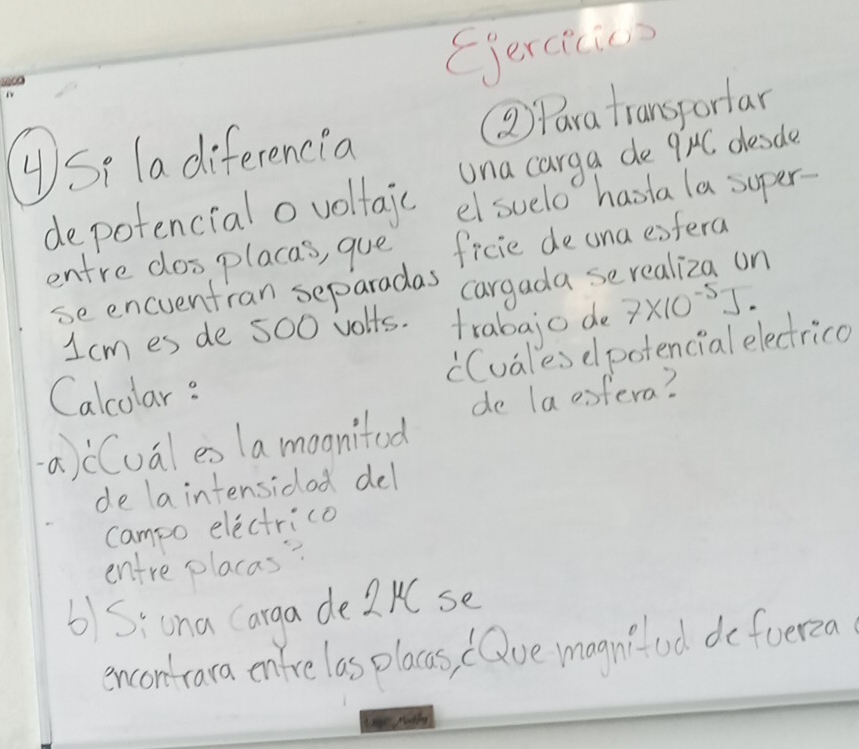 Ejercicios
④ Si la diferencia
de potencial o voltaje
entre dos placas, que
se encuentran separadas
1cm es de 500 volts.
Calcular:
a) ¿Cuál es la magnitud
de la intensidad del
campo eléctrico
entre placas?
b) Si una carga de 2μC se
encontrara entre las placas, ¿Que magnitud de fuerza
② Para transportar
una carga de 9μC desde
el suelo hasta la super-
ficie de una esfera
cargada se realiza un
trabajo de 7x10⁻⁵J.
¿Cuál es el potencial electrico
de la esfera?